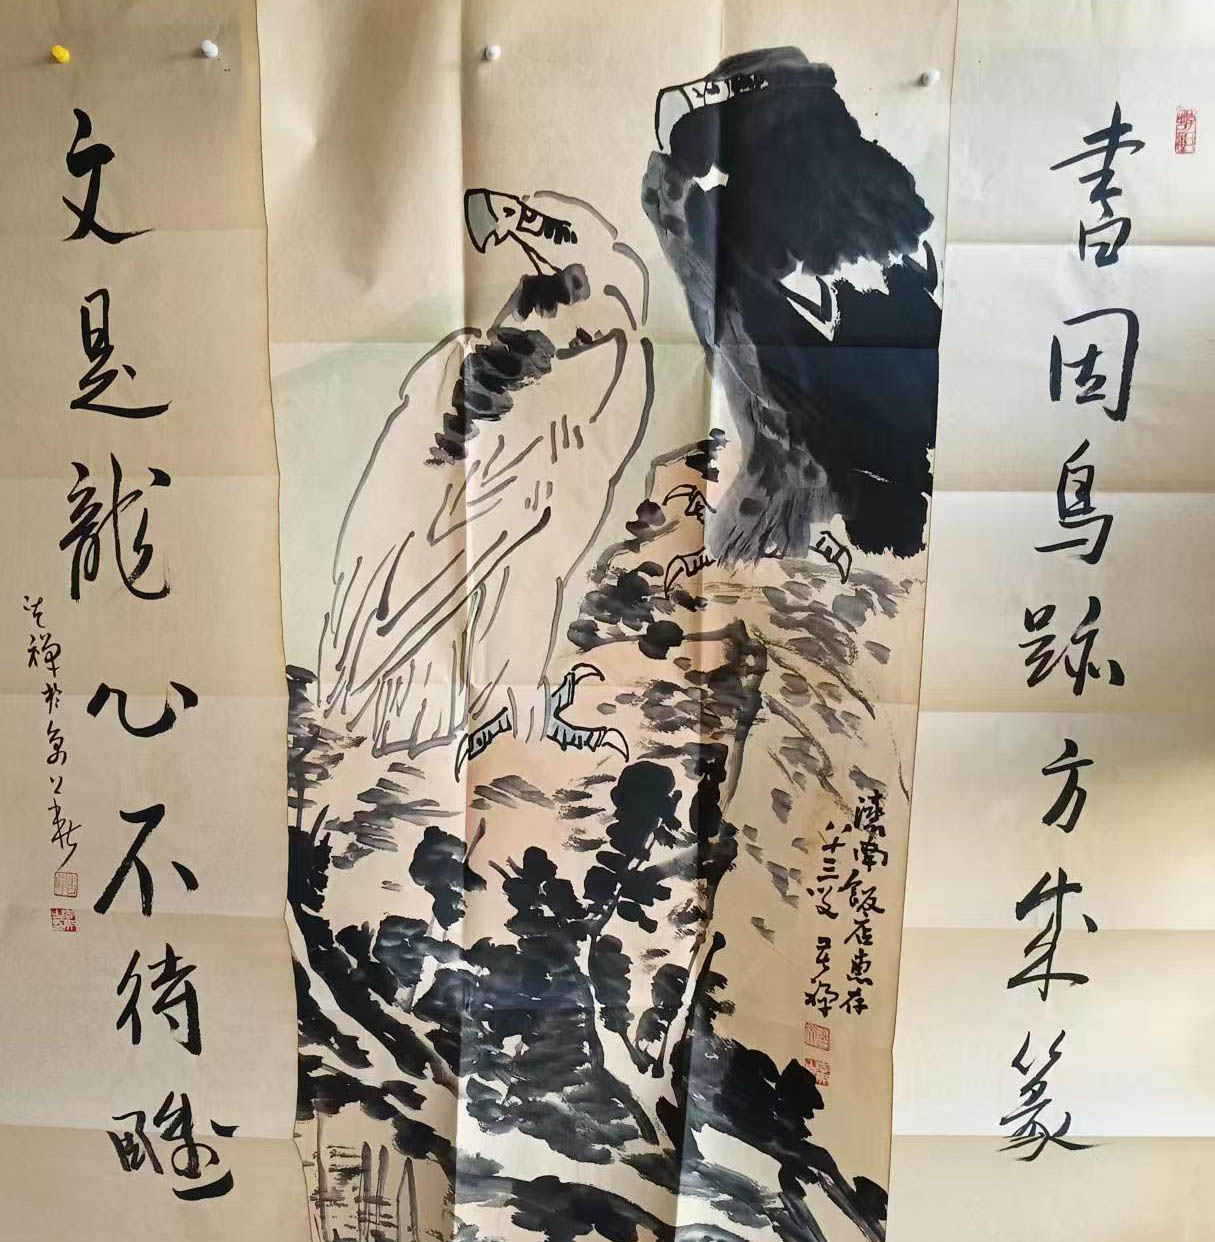 書因鳥跡方成篆
灤南飯店惠存
八十三叟 苦禪
文是龍心不待
苦禪於京